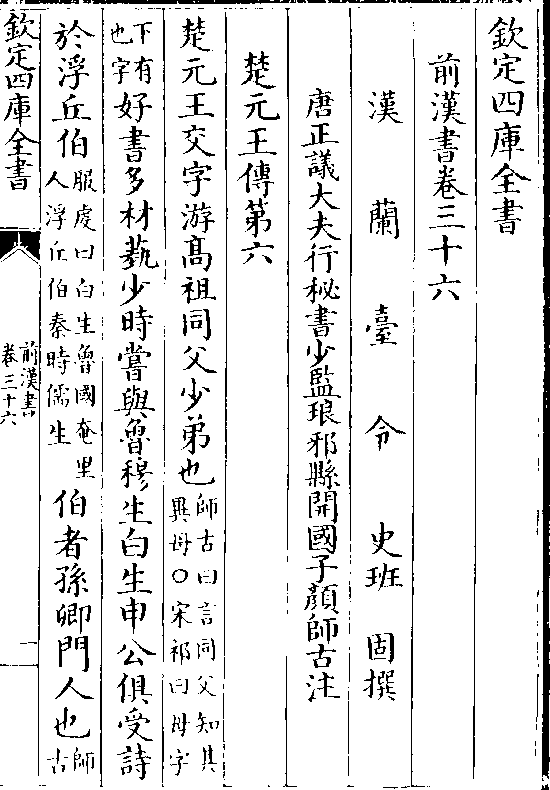 欽定四庫全書
前漢書卷三十六
漢蘭臺令史班固撰
唐正議大夫行秘書少監琅邪縣開國子顔師古注
楚元王傳第六
楚元王交字游髙祖同父少弟也師古曰言同父知其
異母○宋祁曰母字
下有
也字好書多材藝少時嘗與魯穆生白生申公俱受詩
於浮丘伯服虔曰白生魯國奄里
人浮丘伯秦時儒生伯者孫卿門人也師
古
欽定四庫全書
前漢書
卷三十六
一